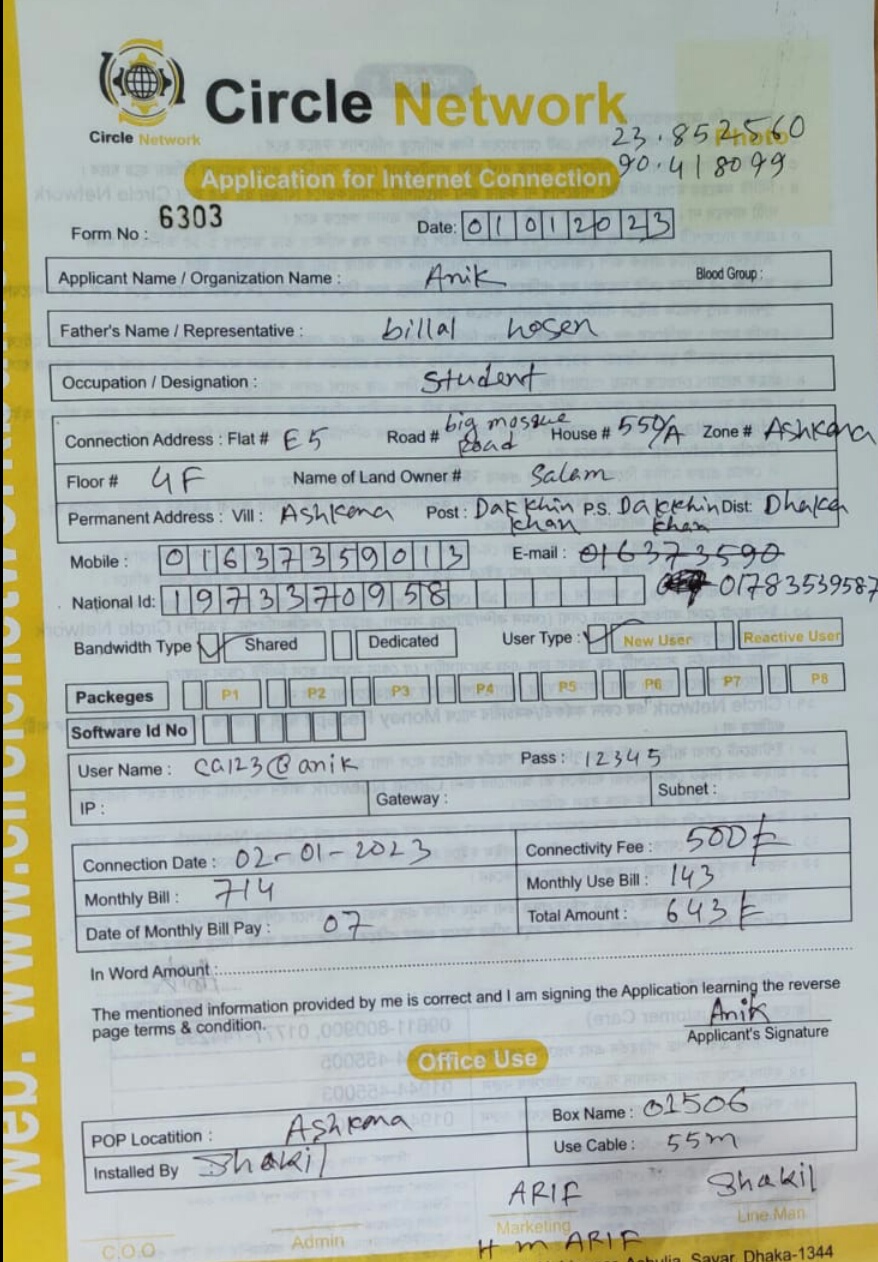 Circle Network
Circle Network
23.852560
Photo
90.418099
Application for Internet Connection
Form No : 6303
Date: 01 01 2023
Applicant Name / Organization Name : Anik Blood Group :
Father's Name / Representative : billal hosen
Occupation / Designation : Student
Connection Address : Flat # E5 Road # big mosque Road House # 550/A Zone # Ashkona
Floor # 4F Name of Land Owner # Salam
Permanent Address : Vill : Ashkona Post : Dakkhin khan P.S. Dakkhin khan Dist: Dhaka
Mobile : 01637359013 E-mail : 016373590
National Id: 1973370958 01783539587
Bandwidth Type Shared Dedicated User Type : New User Reactive User
Packeges P1 P2 P3 P4 P5 P6 P7 P8
Software Id No
User Name : CA123@anik Pass : 12345
IP : Gateway : Subnet :
Connection Date : 02-01-2023 Connectivity Fee : 500
Monthly Bill : 714 Monthly Use Bill : 143
Date of Monthly Bill Pay : 07 Total Amount : 643
In Word Amount :
The mentioned information provided by me is correct and I am signing the Application learning the reverse
page terms & condition.
Anik
Applicant's Signature
Office Use
POP Locatition : Ashkona Box Name : 01506
Installed By Shakil Use Cable : 55m
ARIF Shakil
C.O.O Admin Marketing Line Man
H m ARIF
Ashulia, Savar, Dhaka-1344